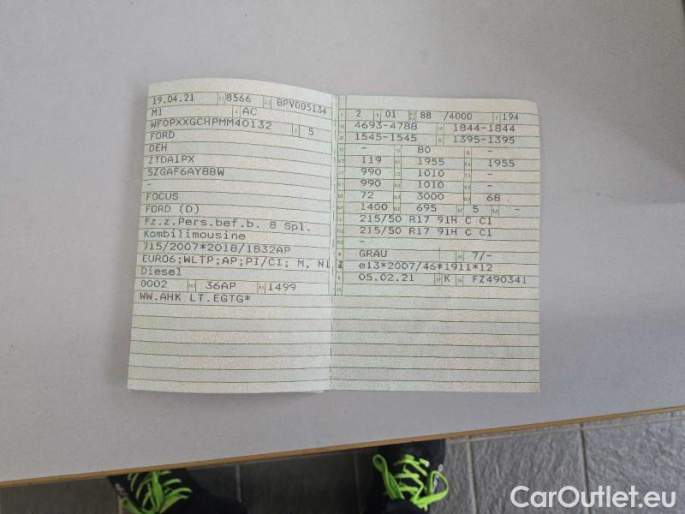 19.04.21 8566 BPV005134
M1 AC
WF0PXXGCHPMM40132 5
FORD
DEH
ZTDA1PX
5ZGAF6AY8BW
-
FOCUS
FORD (D)
Fz.z.Pers.bef.b. 8 Spl.
Kombilimousine
715/2007*2018/1832AP
EURO6;WLTP;AP;PI/CI; M, N1
Diesel
0002 36AP 1499
WW.AHK LT.EGTG*
2 01 88 /4000 194
4693-4788 1844-1844
1545-1545 1395-1395
- 80 -
119 1955 1955
990 1010 -
990 1010 -
72 3000 68
1400 695 5 -
215/50 R17 91H C C1
215/50 R17 91H C C1
-
GRAU 7/-
e13*2007/46*1911*12
05.02.21 K FZ490341
CarOutlet.eu